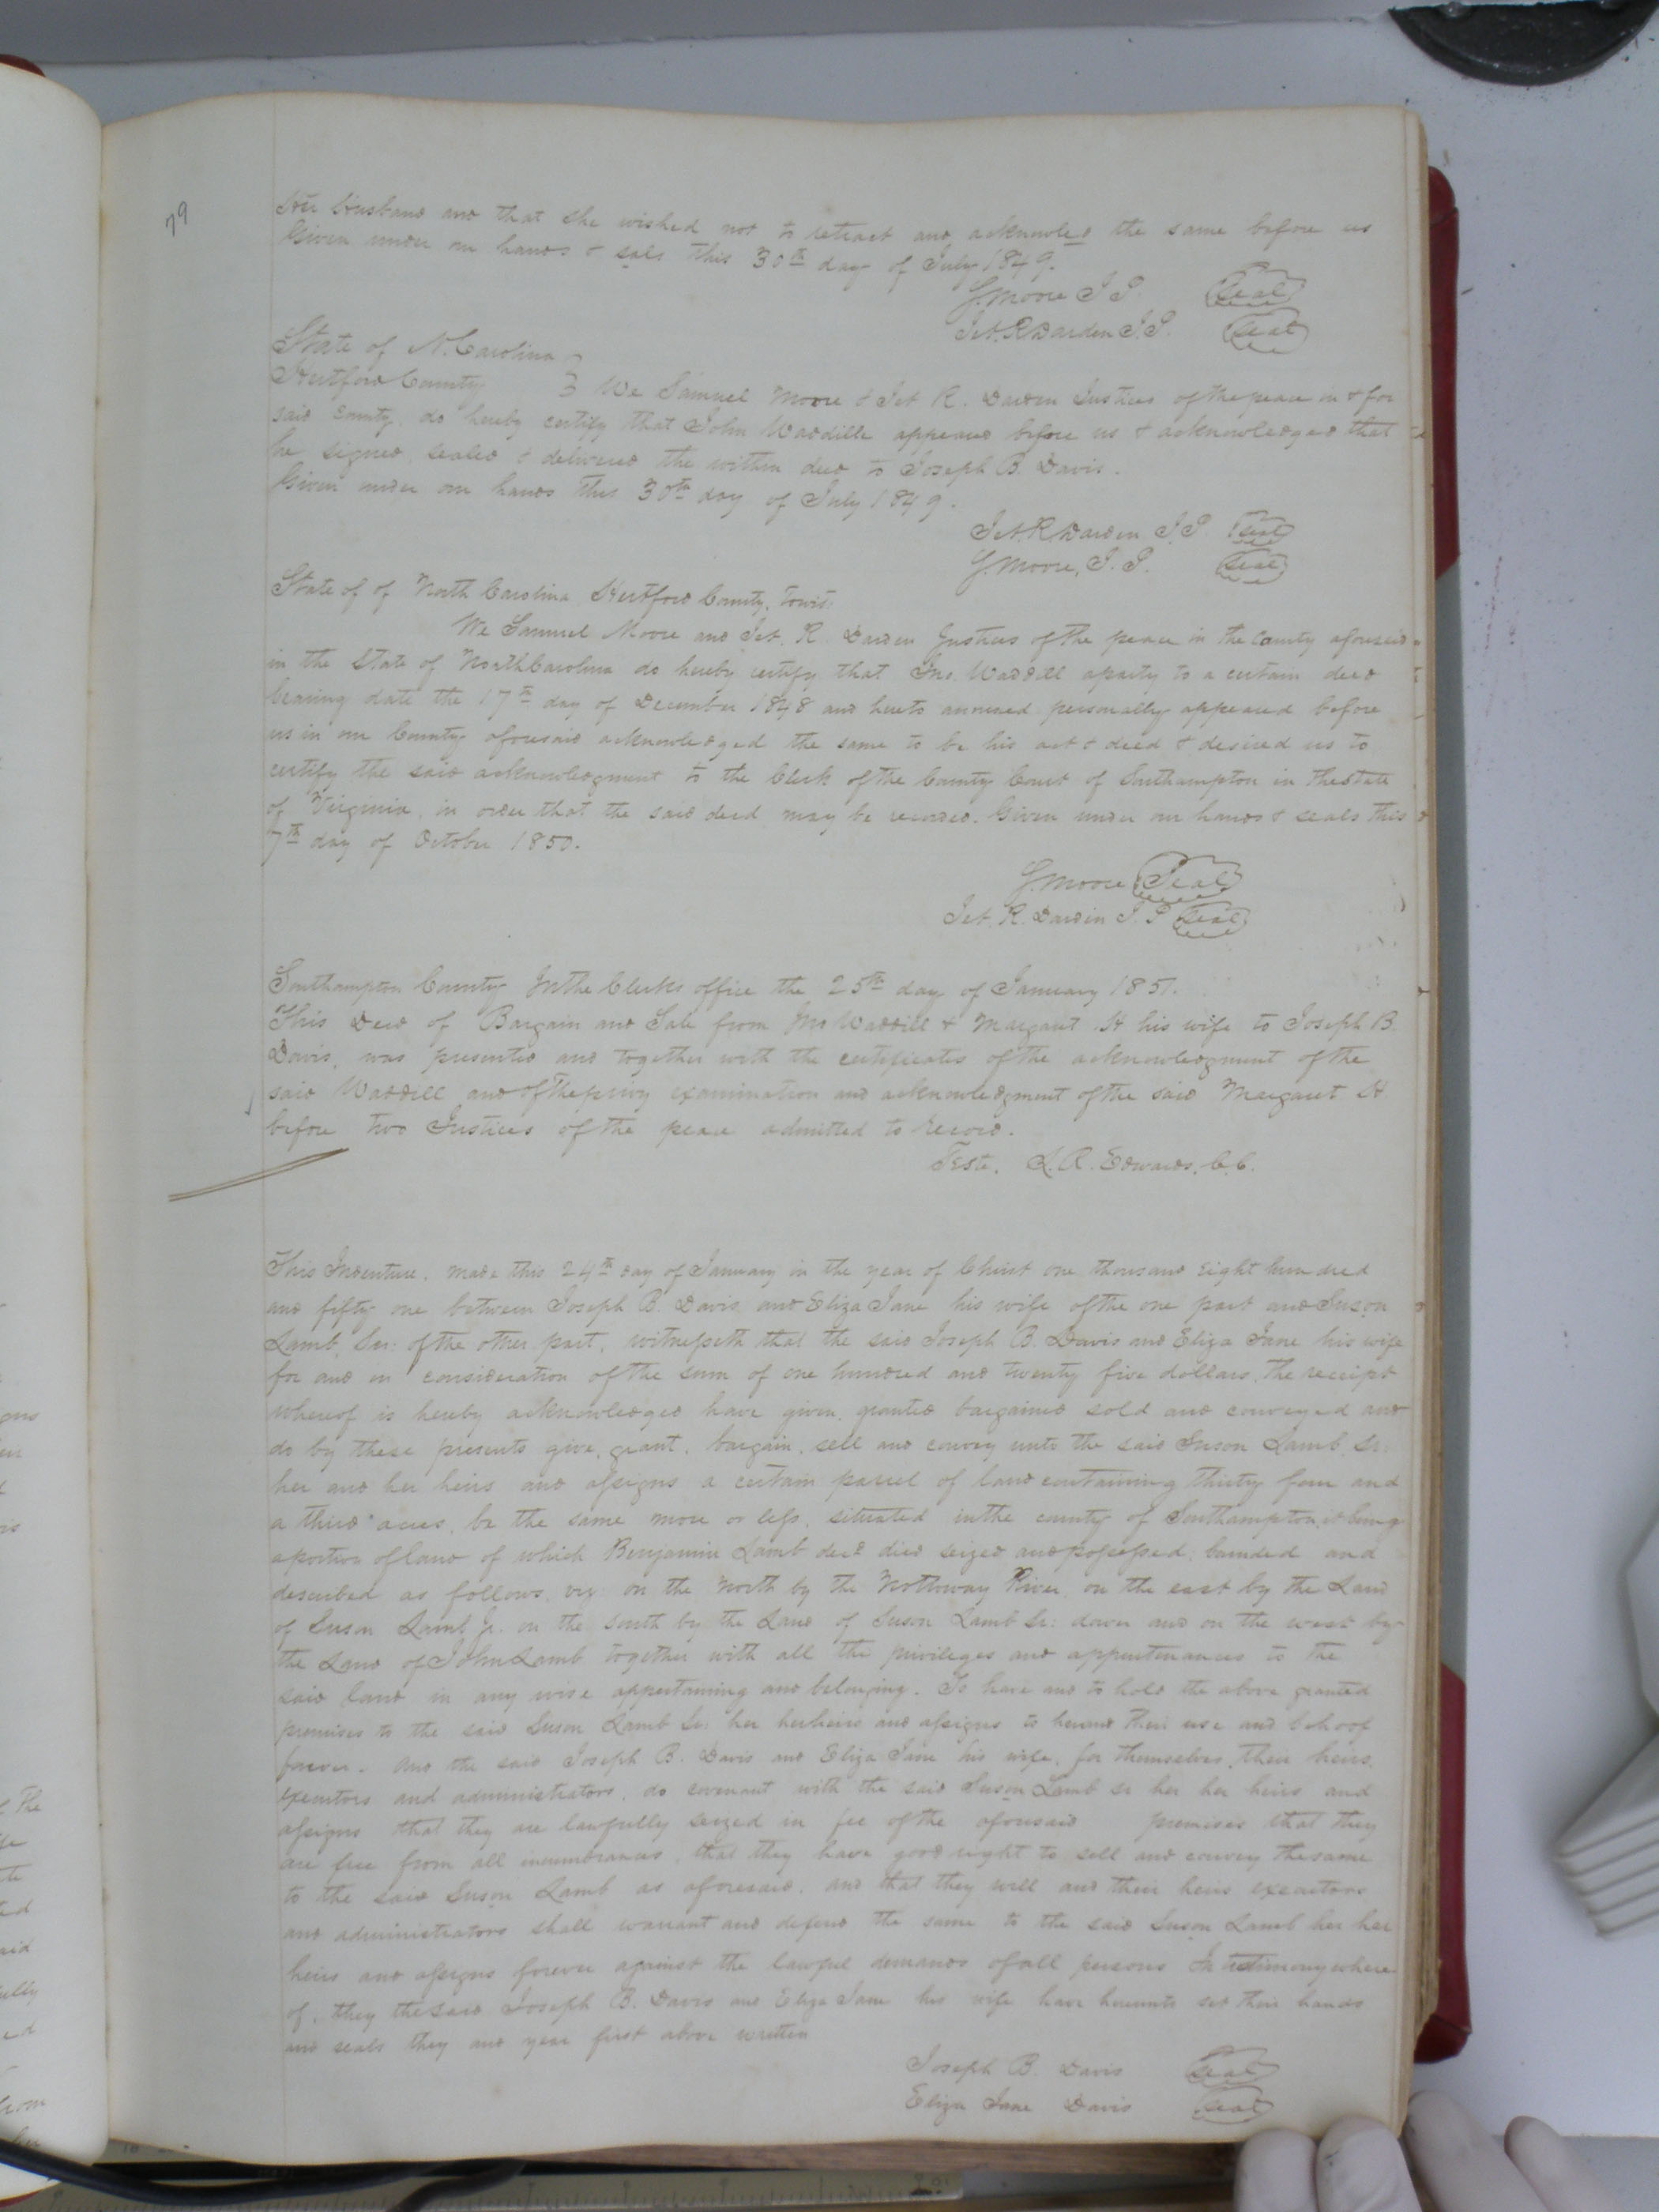 79
Her Husband and that she wished not to retract and acknowled the same before us
Given under our hands & sals this 30th day of July 1849.
S. Moore J P. Seal
Jet. R Darden J.P. Seal
State of N. Carolina
Hertford County } We Samuel Moore & Jet R. Darden Justices of the peace in & for
said county, do hereby certify that John Waddille appeared before us & acknowledged that
he signed, sealed & delivered the within deed to Joseph B. Davis.
Given under our hands this 30th day of July 1849.
Jet. R. Darden J.P. Seal
S. Moore, J. P. Seal
State of of North Carolina, Hertford County, Towit:
We Samuel Moore and Jet. R. Darden Justices of the peace in the County aforesaid
in the State of North Carolina do hereby certify that Jno. Waddill a party to a certain deed
bearing date the 17th day of December 1848 and hereto annexed personally appeared before
us in our County aforesaid acknowledged the same to be his act & deed & desired us to
certify the said acknowledgment to the Clerk of the County Court of Southampton in the State
of Virginia, in order that the said deed may be recorded. Given under our hands & seals this
7th day of October 1850.
S. Moore Seal
Jet. R. Darden J. P Seal
Southampton County In the Clerks office the 25th day of January 1851.
This Deed of Bargain and Sale from Jno Waddill & Margaret H his wife to Joseph B.
Davis, was presented and together with the certificates of the acknowledgment of the
said Waddill and of the privy examination and acknowledgment of the said Margaret H.
before two Justices of the peace admitted to record.
Teste. L. R. Edwards, C. C.
This Indenture, made this 24th day of January in the year of Christ one thousand eight hundred
and fifty one between Joseph B. Davis and Eliza Jane his wife of the one part and Suson
Lamb, Sr: of the other part, witnesseth that the said Joseph B. Davis and Eliza Jane his wife
for and in consideration of the sum of one hundred and twenty five dollars, the receipt
whereof is hereby acknowledged have given, granted bargained sold and conveyed and
do by these presents give, grant, bargain, sell and convey unto the said Suson Lamb, Sr:
her and her heirs and assigns a certain parcel of land containing thirty four and
a third acres, be the same more or less, situated in the county of Southampton, it being
a portion of land of which Benjamin Lamb decd died seized and possessed, bounded and
described as follows, viz: on the North by the Nottoway River, on the east by the Land
of Suson Lamb Jr. on the south by the Land of Suson Lamb Sr: dower and on the west by
the Land of John Lamb together with all the privileges and appurtenances to the
said land in any wise appertaining and belonging. To have and to hold the above granted
premises to the said Suson Lamb Sr: her her heirs and assigns to her and their use and behoof
forever. And the said Joseph B. Davis and Eliza Jane his wife, for themselves, their heirs,
executors and administrators, do covenant with the said Suson Lamb sr her her heirs and
assigns that they are lawfully seized in fee of the aforesaid premises that they
are free from all incumbrances, that they have good right to sell and convey the same
to the said Suson Lamb as aforesaid, and that they will and their heirs executors
and administrators shall warrant and defend the same to the said Suson Lamb her her
heirs and assigns forever against the lawful demands of all persons In testimony where
of, they the said Joseph B. Davis and Eliza Jane his wife have hereunto set their hands
and seals they and year first above written
Joseph B. Davis Seal
Eliza Jane Davis Seal